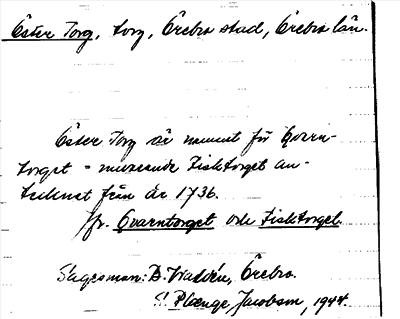 Öster Torg, torg, Örebro stad, Örebro län.
Öster Torg är namnet för Qvarn-
torget = nuvarande Fisktorget an-
tecknat från år 1736.
Jfr. Qvarntorget och Fisktorget.
Sagesman: B. Waldén, Örebro.
S. Plœnge Jacobson, 1944.